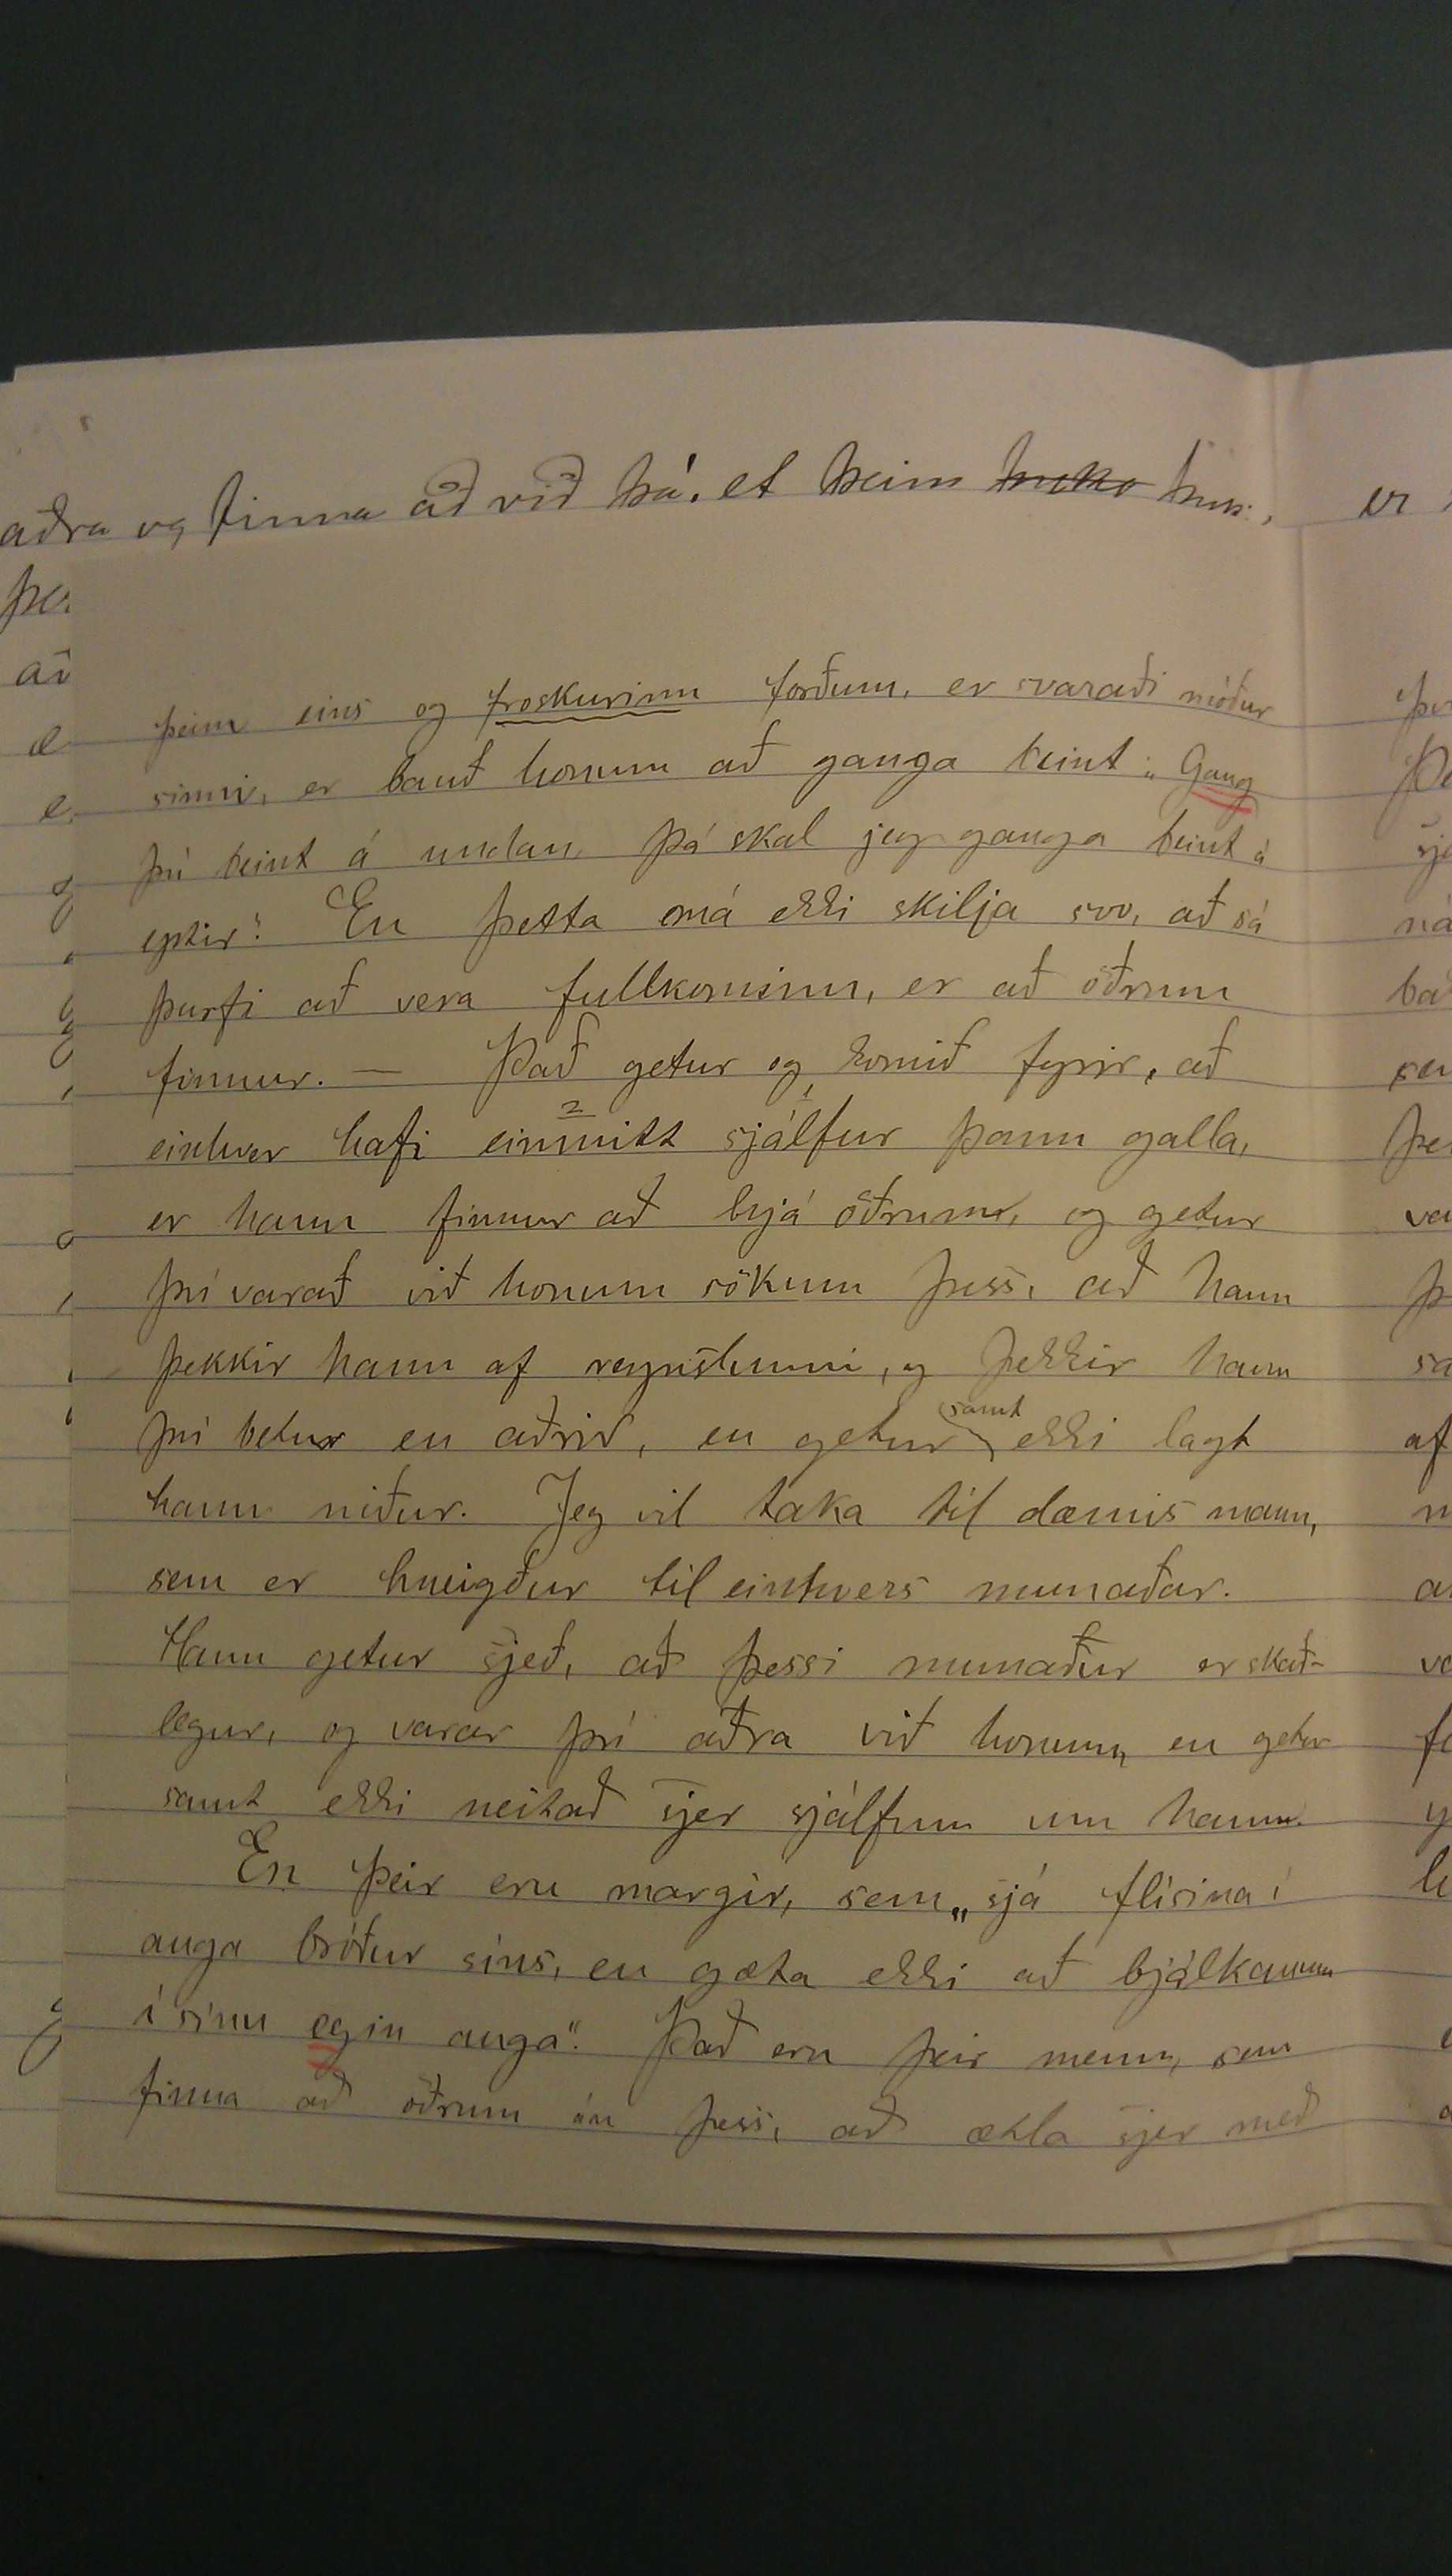 aðra og finna að við þá. et þeim
þeim eins og froskurinn forðum, er svaraði móður
sinni, er bauð honum að ganga beint: „Gang
þú beint á undan, þá skal jeg ganga beint á
eptir“. En þetta má ekki skilja svo, að sá
þurfi að vera fullkominn, er að öðrum
finnur. — Það getur og komið fyrir, að
einhver hafi einmitt sjálfur þann galla,
er hann finnur að hjá öðrum, og getur
því varað við honum sökum þess, að hann
þekkir hann af reynslunni, og þekkir hann
því betur en aðrir, en getur samt ekki lagt
hann niður. Jeg vil taka til dæmis mann,
sem er hneigður til einhvers munaðar.
Hann getur sjeð, að þessi munaður er skað-
legur, og varar því aðra við honum, en getur
samt ekki neitað sjer sjálfum um hann.
En þeir eru margir, sem „sjá flísina í
auga bróður síns, en gæta ekki að bjálkanum
í sínu egin auga“. Það eru þeir menn, sem
finna að öðrum án þess, að ætla sjer með